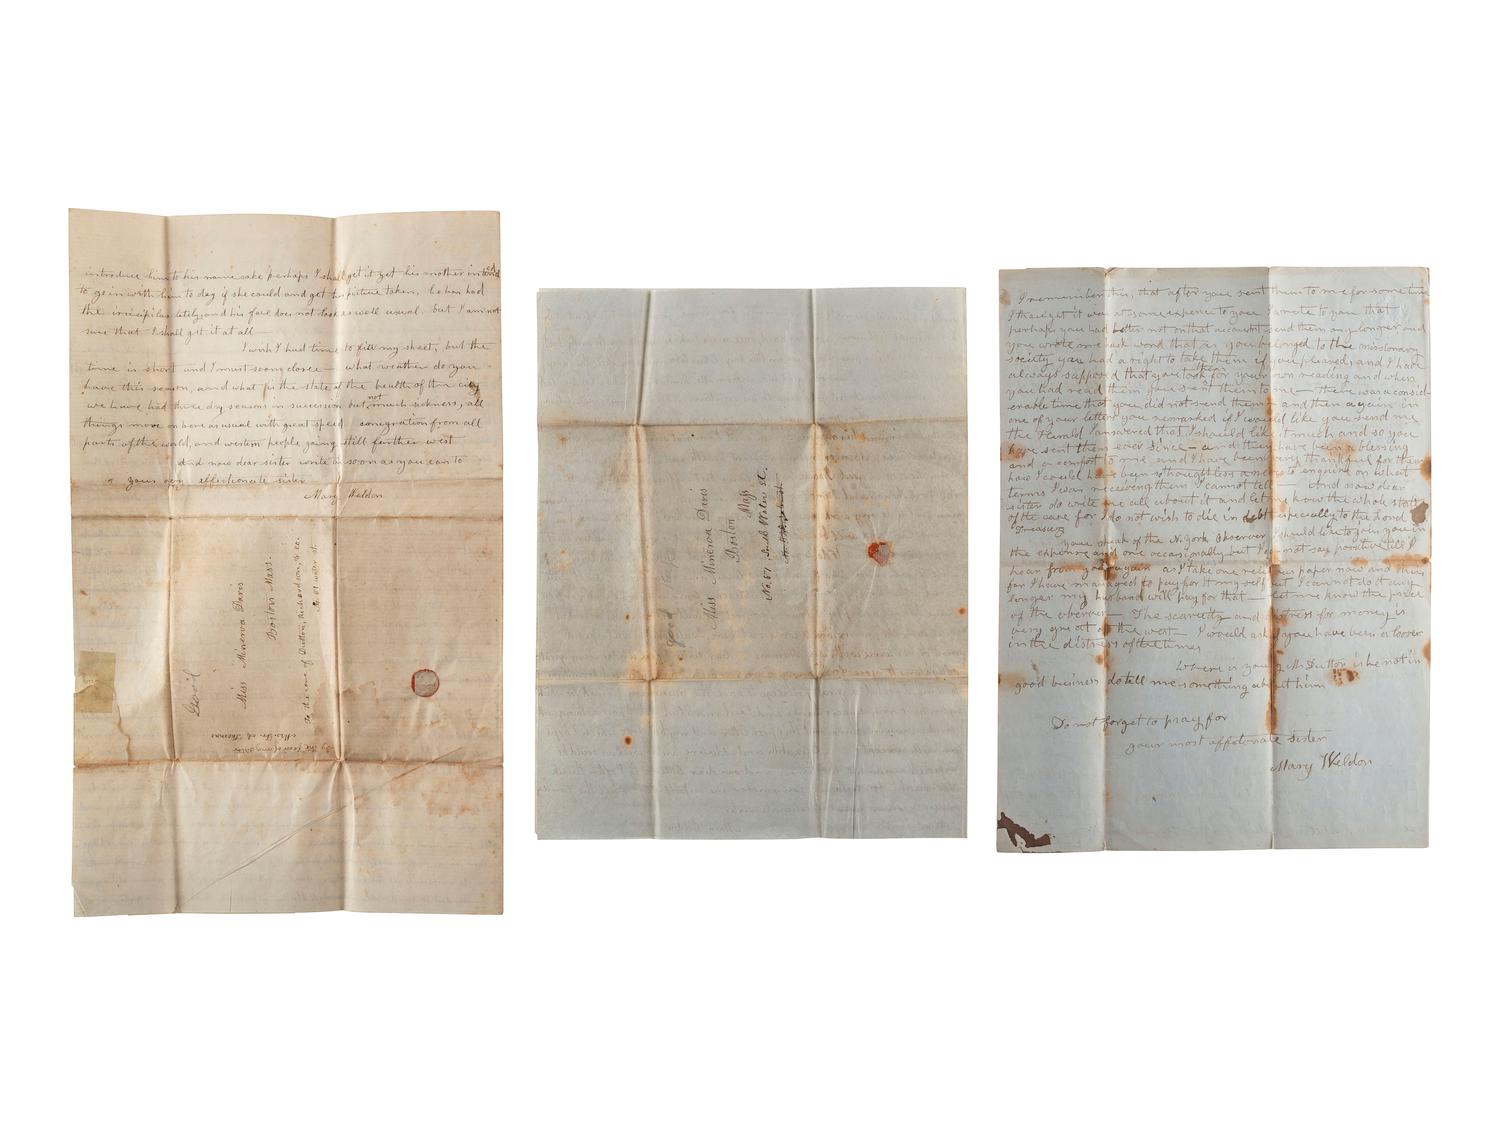 introduce him to his name sake perhaps I shall get it yet his mother intend
to go in with him to day if she could and get his picture taken, he has had
the irricipilas lately, and his face does not look as well usual. but I am not
sure that I shall get it at all
I wish I had time to fill my sheet, but the
time is short and I must soon close — what weather do you
have this season, and what is the state of the health of the city
we have had three dry seasons in succession but not much sickness, all
things move on here as usual with great speed emigration from all
parts of the world, and western people going still further west
And now dear sister write as soon as you can to
your very affectionate sister
Mary Weldon
Good
Miss Minerva Davis
Boston Mass.
To the care of Dutton, Richardson, & co.
No. 81 water st.
Good
Miss Minerva Davis
Boston
Mass
No. 67 South Water st.
I remember this, that after you sent them to me for some time
I thought it was at some expense to you I wrote to you that
perhaps you had better not on that account send them any longer and
you wrote me back word that as you belonged to the missionary
society you had a right to take them if you pleased, and I have
always supposed that you took them for your own reading and when
you had read them you sent them to me — there was a consid-
erable time that you did not send them and then again in
one of your letters you remarked if I would like you send me
the Herald I answered that I should like it much and so you
have sent them ever since — and they have been a blessing
and a comfort to me, and I have been very thankful for them
how I could have been so thoughtless and not to enquire on what
terms I was receiving them I cannot tell — And now dear
sister do write me all about it and let me know the whole state
of the case for I do not wish to die in debt especially to the Lord
Treasury
you speak of the N. York Observer I should like to join you in
the expense and one occasionally but I cannot say positive till I
hear from you again as I take one religious paper now and thus
far I have managed to pay for it myself but I cannot do it any
longer my husband will pay for that — let me know the price
of the observer — The scarcity and distress for money is
very great at the west — I would ask if you have been a looser
in the distress of the times
Where is young Mr Dutton is he not in
good business do tell me something about him
Do not forget to pray for
your most affetonate sister
Mary Weldon